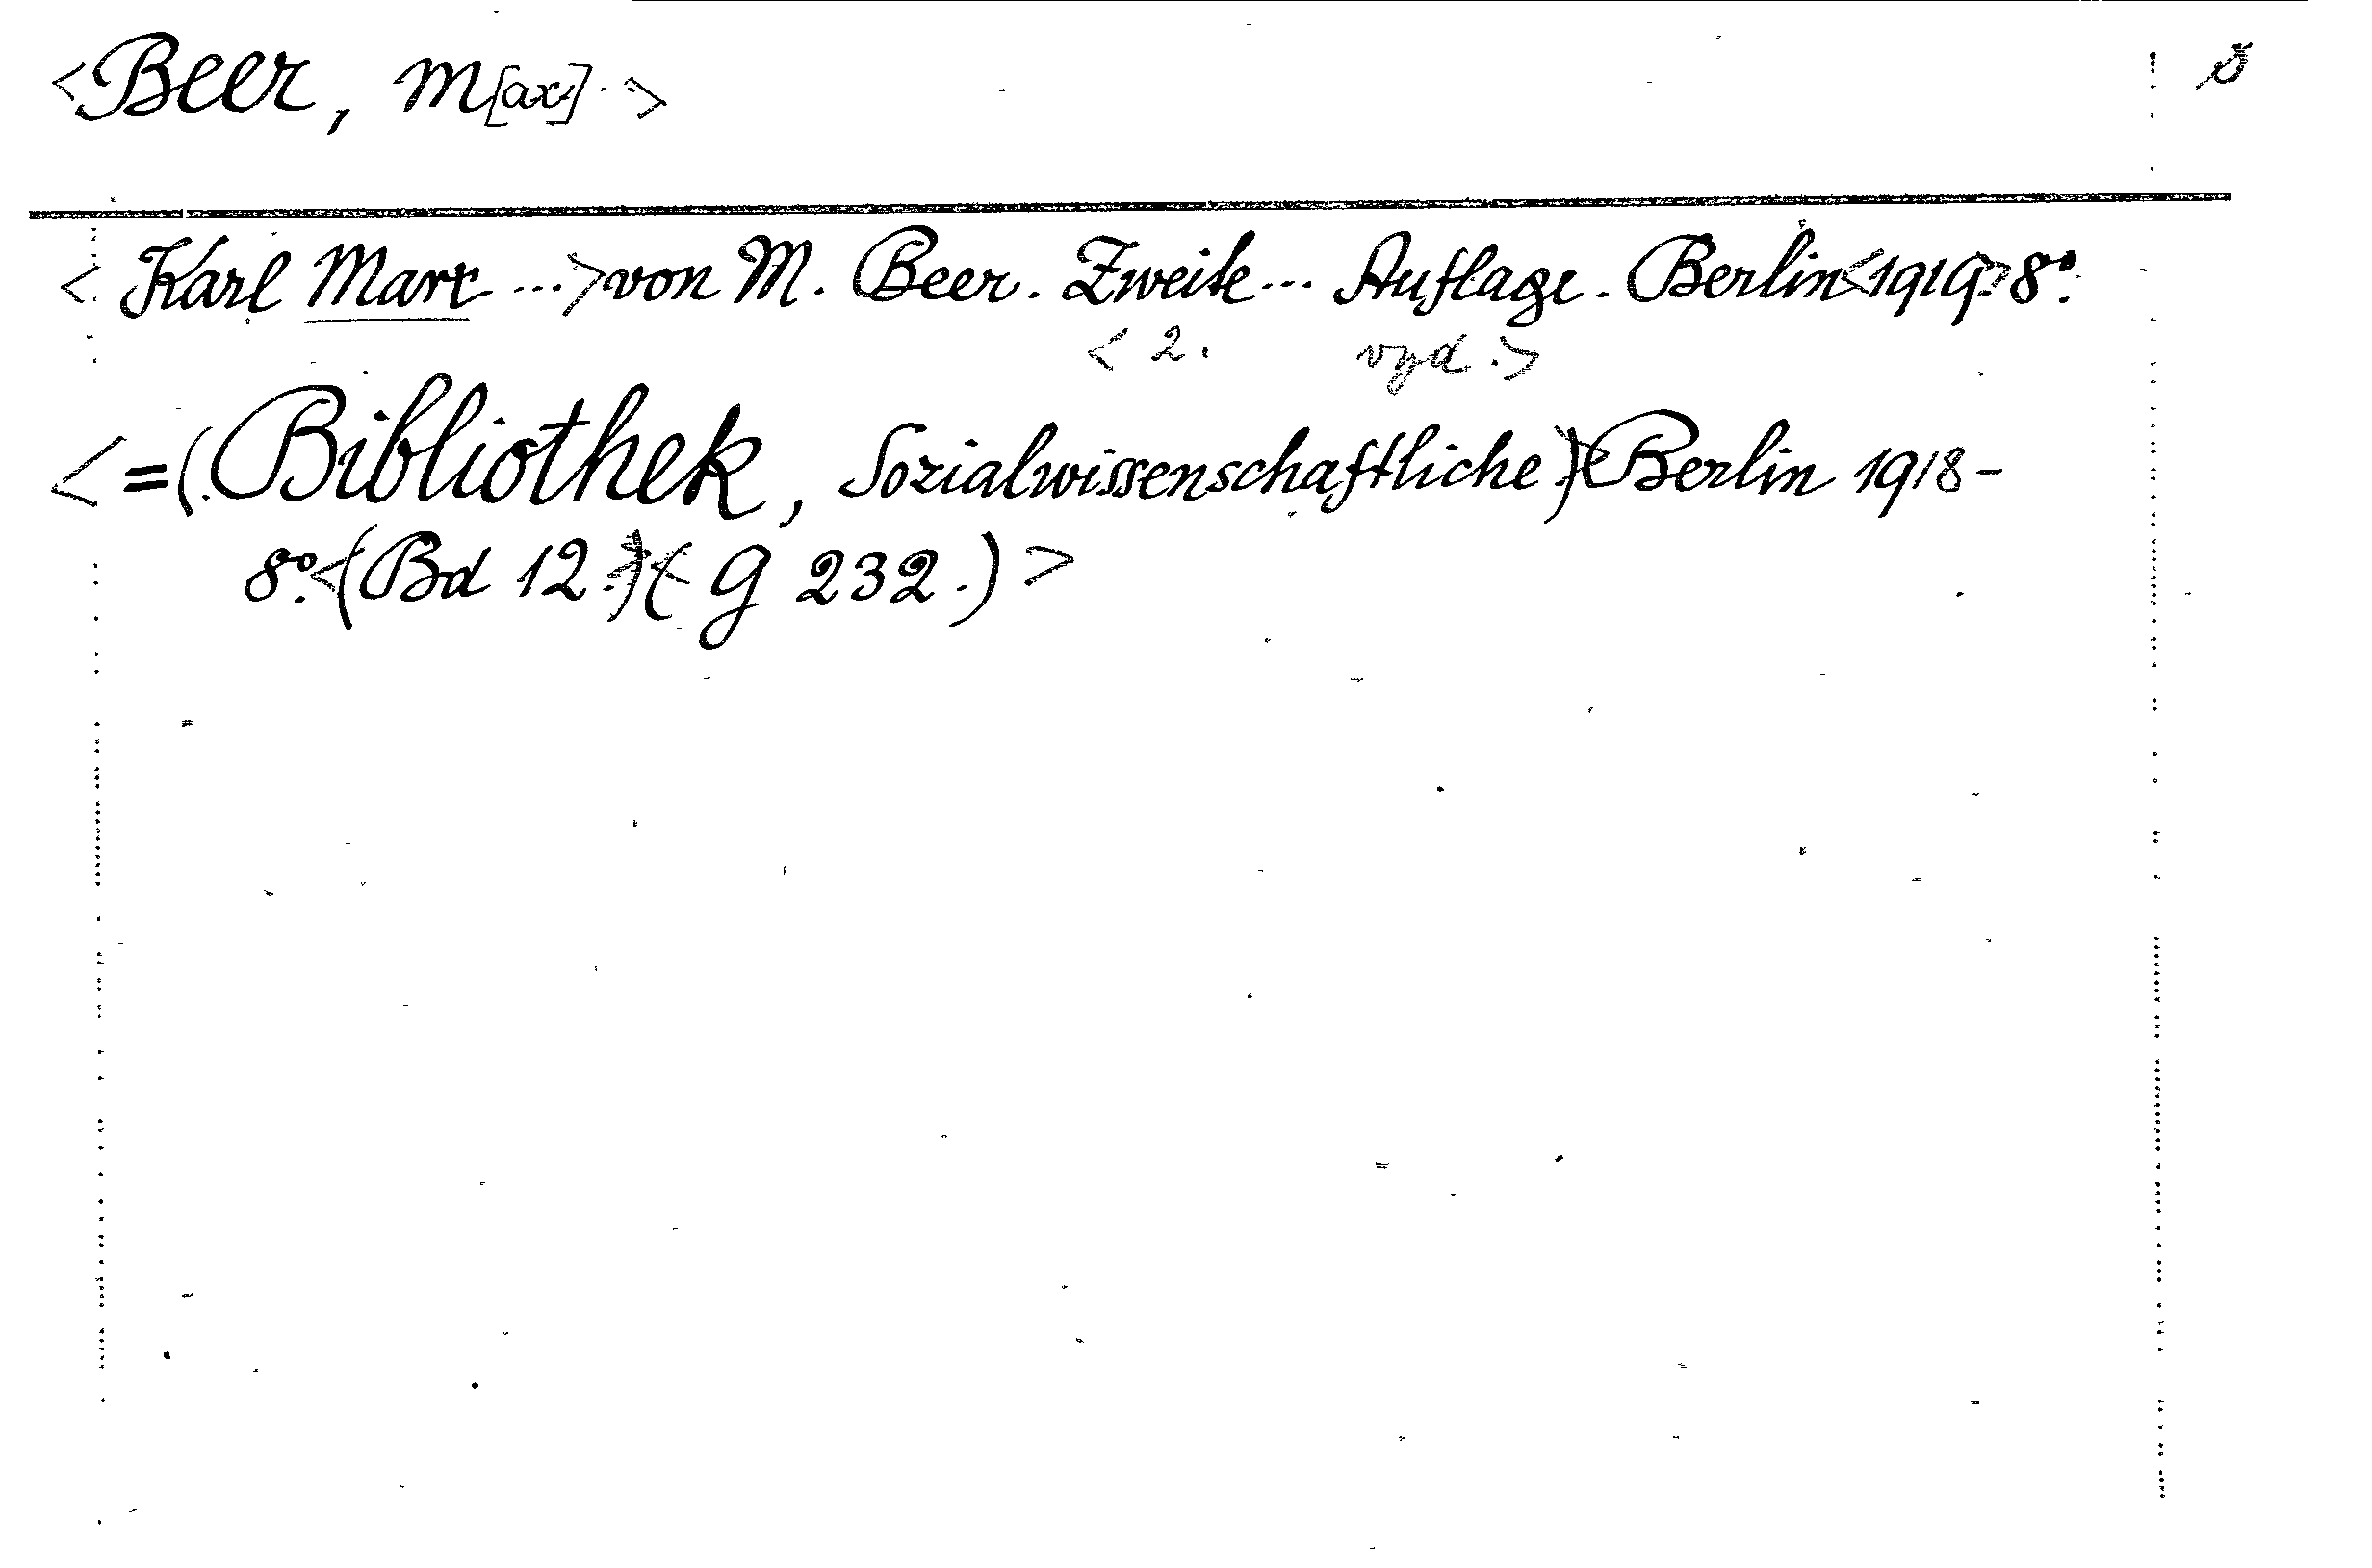 <Beer, M[ax].>
< Karl Marx ...> von M. Beer. Zweite ... Auflage. Berlin <1919.> 8°.
< 2. vyd.>
<=(Bibliothek, Sozialwissenschaftliche.)< Berlin 1918-
8°.<(Bd 12.)>(< G 232.)>